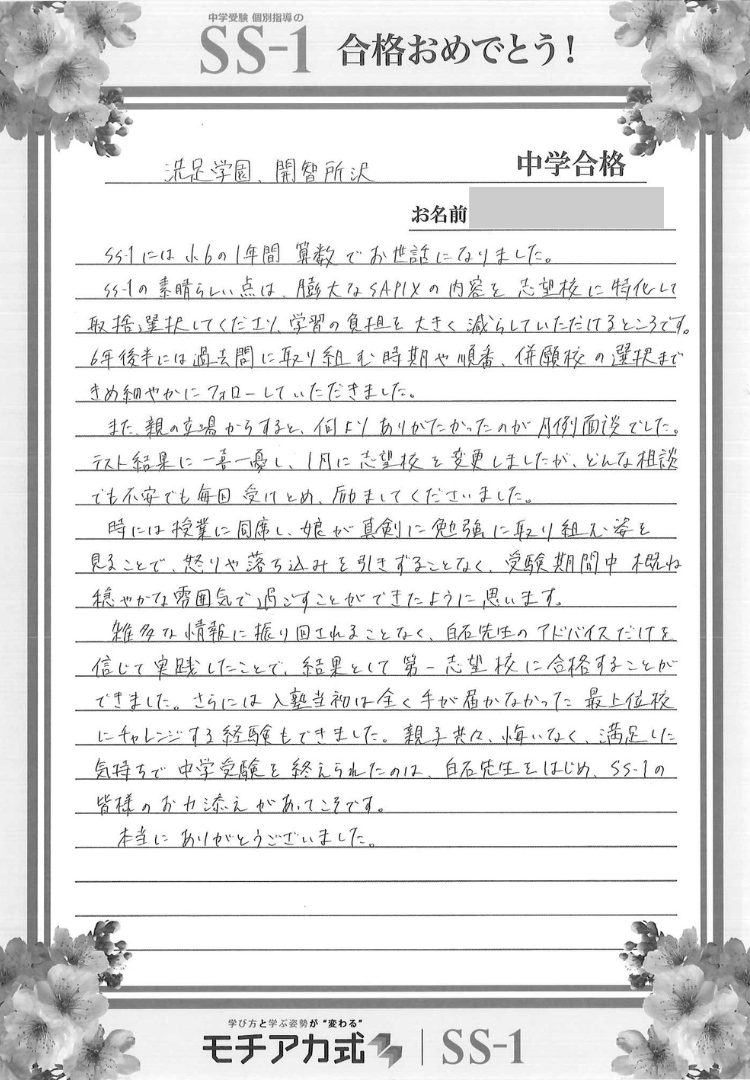 中学受験 個別指導の
SS-1 合格おめでとう!
洗足学園、開智所沢 中学合格
お名前
SS-1には小6の1年間 算数でお世話になりました。
SS-1の素晴らしい点は、膨大なSAPIXの内容を志望校に特化して
取捨選択してくださり、学習の負担を大きく減らしていただけるところです。
6年後半には過去問に取り組む時期や順番、併願校の選択まで
きめ細やかにフォローしていただきました。
また、親の立場からすると、何よりありがたかったのが月例面談でした。
テスト結果に一喜一憂し、1月に志望校を変更しましたが、どんな相談
でも不安でも毎回受けとめ、励ましてくださいました。
時には授業に同席し、娘が真剣に勉強に取り組む姿を
見ることで、怒りや落ち込みを引きずることなく、受験期間中概ね
穏やかな雰囲気で過ごすことができたように思います。
雑多な情報に振り回されることなく、白石先生のアドバイスだけを
信じて実践したことで、結果として第一志望校に合格することが
できました。さらには入塾当初は全く手が届かなかった最上位校
にチャレンジする経験もできました。親子共々、悔いなく、満足した
気持ちで中学受験を終えられたのは、白石先生をはじめ、SS-1の
皆様のお力添えがあってこそです。
本当にありがとうございました。
学び方と学ぶ姿勢が“変わる”
モチアカ式 SS-1